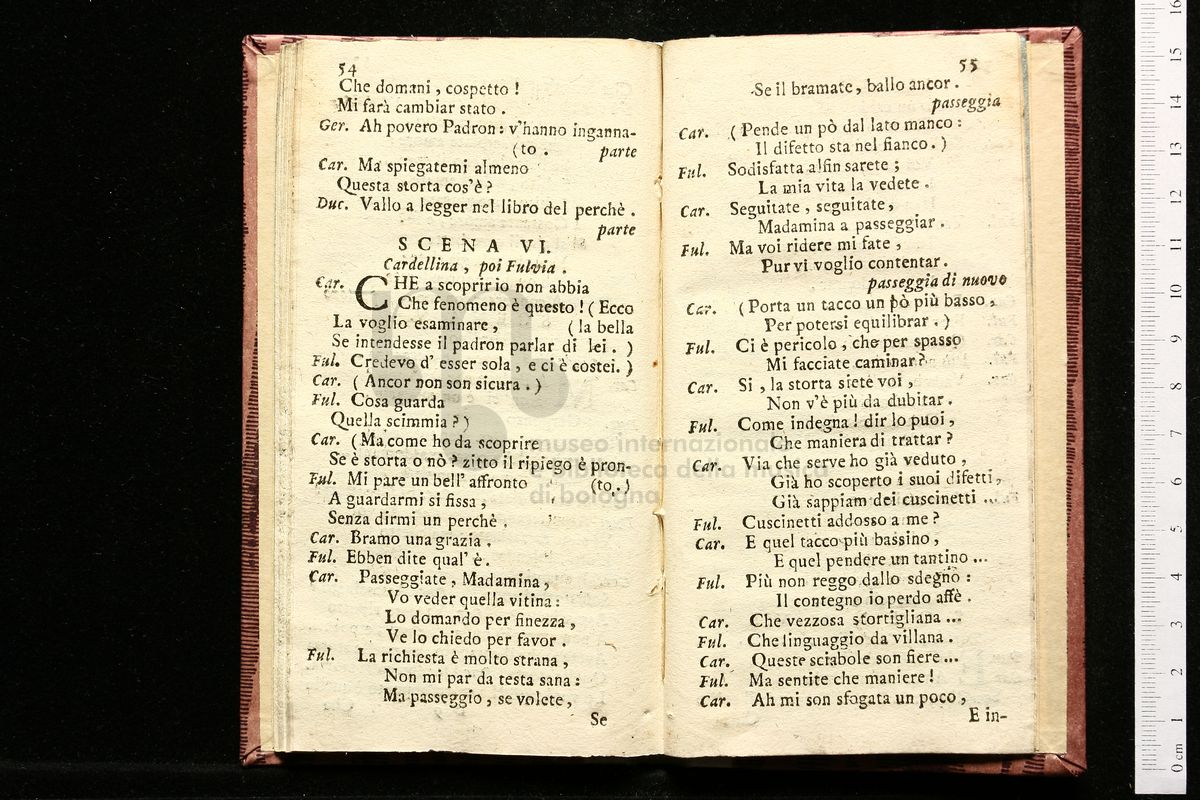 54
Che domani, cospetto!
Mi farà cambiar stato.
Ger. Ah povero Padron: v'hanno inganna-
(to. parte
Car. Ma spiegatemi almeno
Questa storta cos'è?
Duc. Vallo a legger nel libro del perchè.
parte
SCENA VI.
Cardellina, poi Fulvia.
Car. CHE a scoprir io non abbia
Che fenomeno è questo! (Ecco
La voglio esaminare, (la bella
Se intendesse il padron parlar di lei. )
Ful. Credevo d' esser sola, e ci è costei. )
Car. (Ancor non son sicura.)
Ful. Cosa guarda
Quella scimmia?)
Car. (Ma come ho da scoprire
Se è storta o nò? zitto il ripiego è pron-
Ful. Mi pare un bell' affronto (to.)
A guardarmi si fissa,
Senza dirmi un perchè.
Car. Bramo una grazia.
Ful. Ebben dite qual' è.
Car. Passeggiate, Madamina,
Vo veder quella vitina:
Lo domando per finezza,
Ve lo chiedo per favor.
Ful. La richiesta è molto strana,
Non mi par da testa sana:
Ma passeggio, se volete,
Se
55
Se il bramate, ballo ancor.
passeggia
Car. (Pende un pò dal lato manco:
Il difetto sta nel fianco.)
Ful. Sodisfatta alfin sarete;
La mia vita la vedete.
Car. Seguitate, seguitate,
Madamina a passeggiar.
Ful. Ma voi ridere mi fate,
Pur vi voglio contentar.
passeggia di nuovo
Car. (Porta un tacco un pò più basso,
Per potersi equilibrar.)
Ful. Ci è pericolo, che per spasso
Mi facciate caminar?
Car. Si, la storta siete voi,
Non v'è più da dubitar.
Ful. Come indegna! dir lo puoi,
Che maniera di trattar?
Car. Via che serve ho già veduto,
Già ho scoperto i suoi difetti,
Già sappiam dei cuscinetti ...
Ful. Cuscinetti addosso a me?
Car. E quel tacco più bassino,
E quel pendere un tantino ...
Ful. Più non reggo dallo sdegno:
Il contegno io perdo affè.
Car. Che vezzosa stortigliana ...
Ful. Che linguaggio da villana.
Car. Queste sciabole son fiere ...
Ful. Ma sentite che maniere!
Car. Ah mi son sfogata un poco,
E in-
museo internazionale
e biblioteca della musica
di bologna
0 cm 1 2 3 4 5 6 7 8 9 10 11 12 13 14 15 16